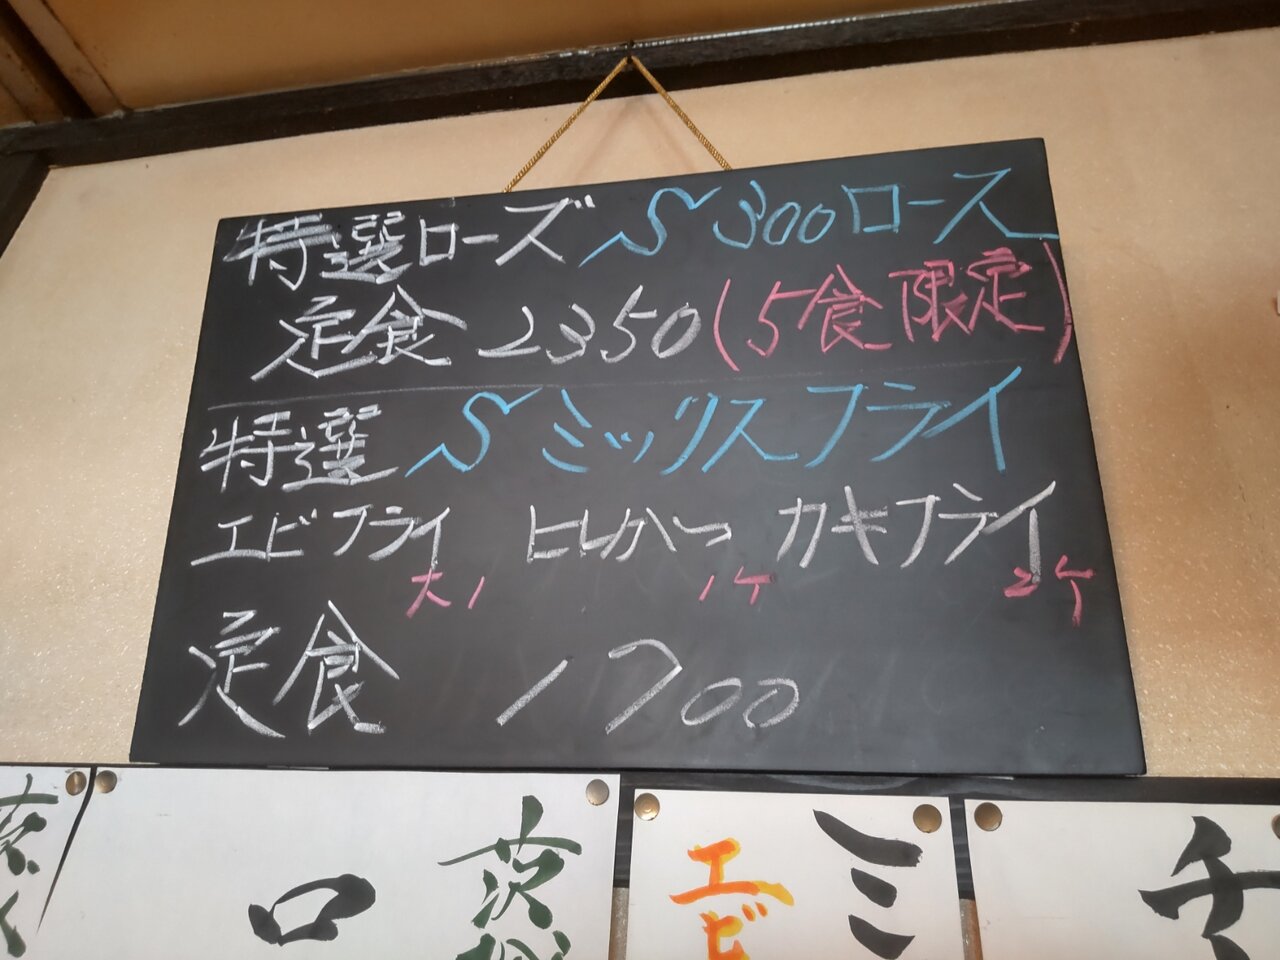 特選ローズ S 300ロース
定食 2350(5食限定)
特選 S ミックスフライ
エビフライ ヒレかつ カキフライ
大1 1ケ 2ケ
定食 1700
ロ
茨
エビ
ミ
チ